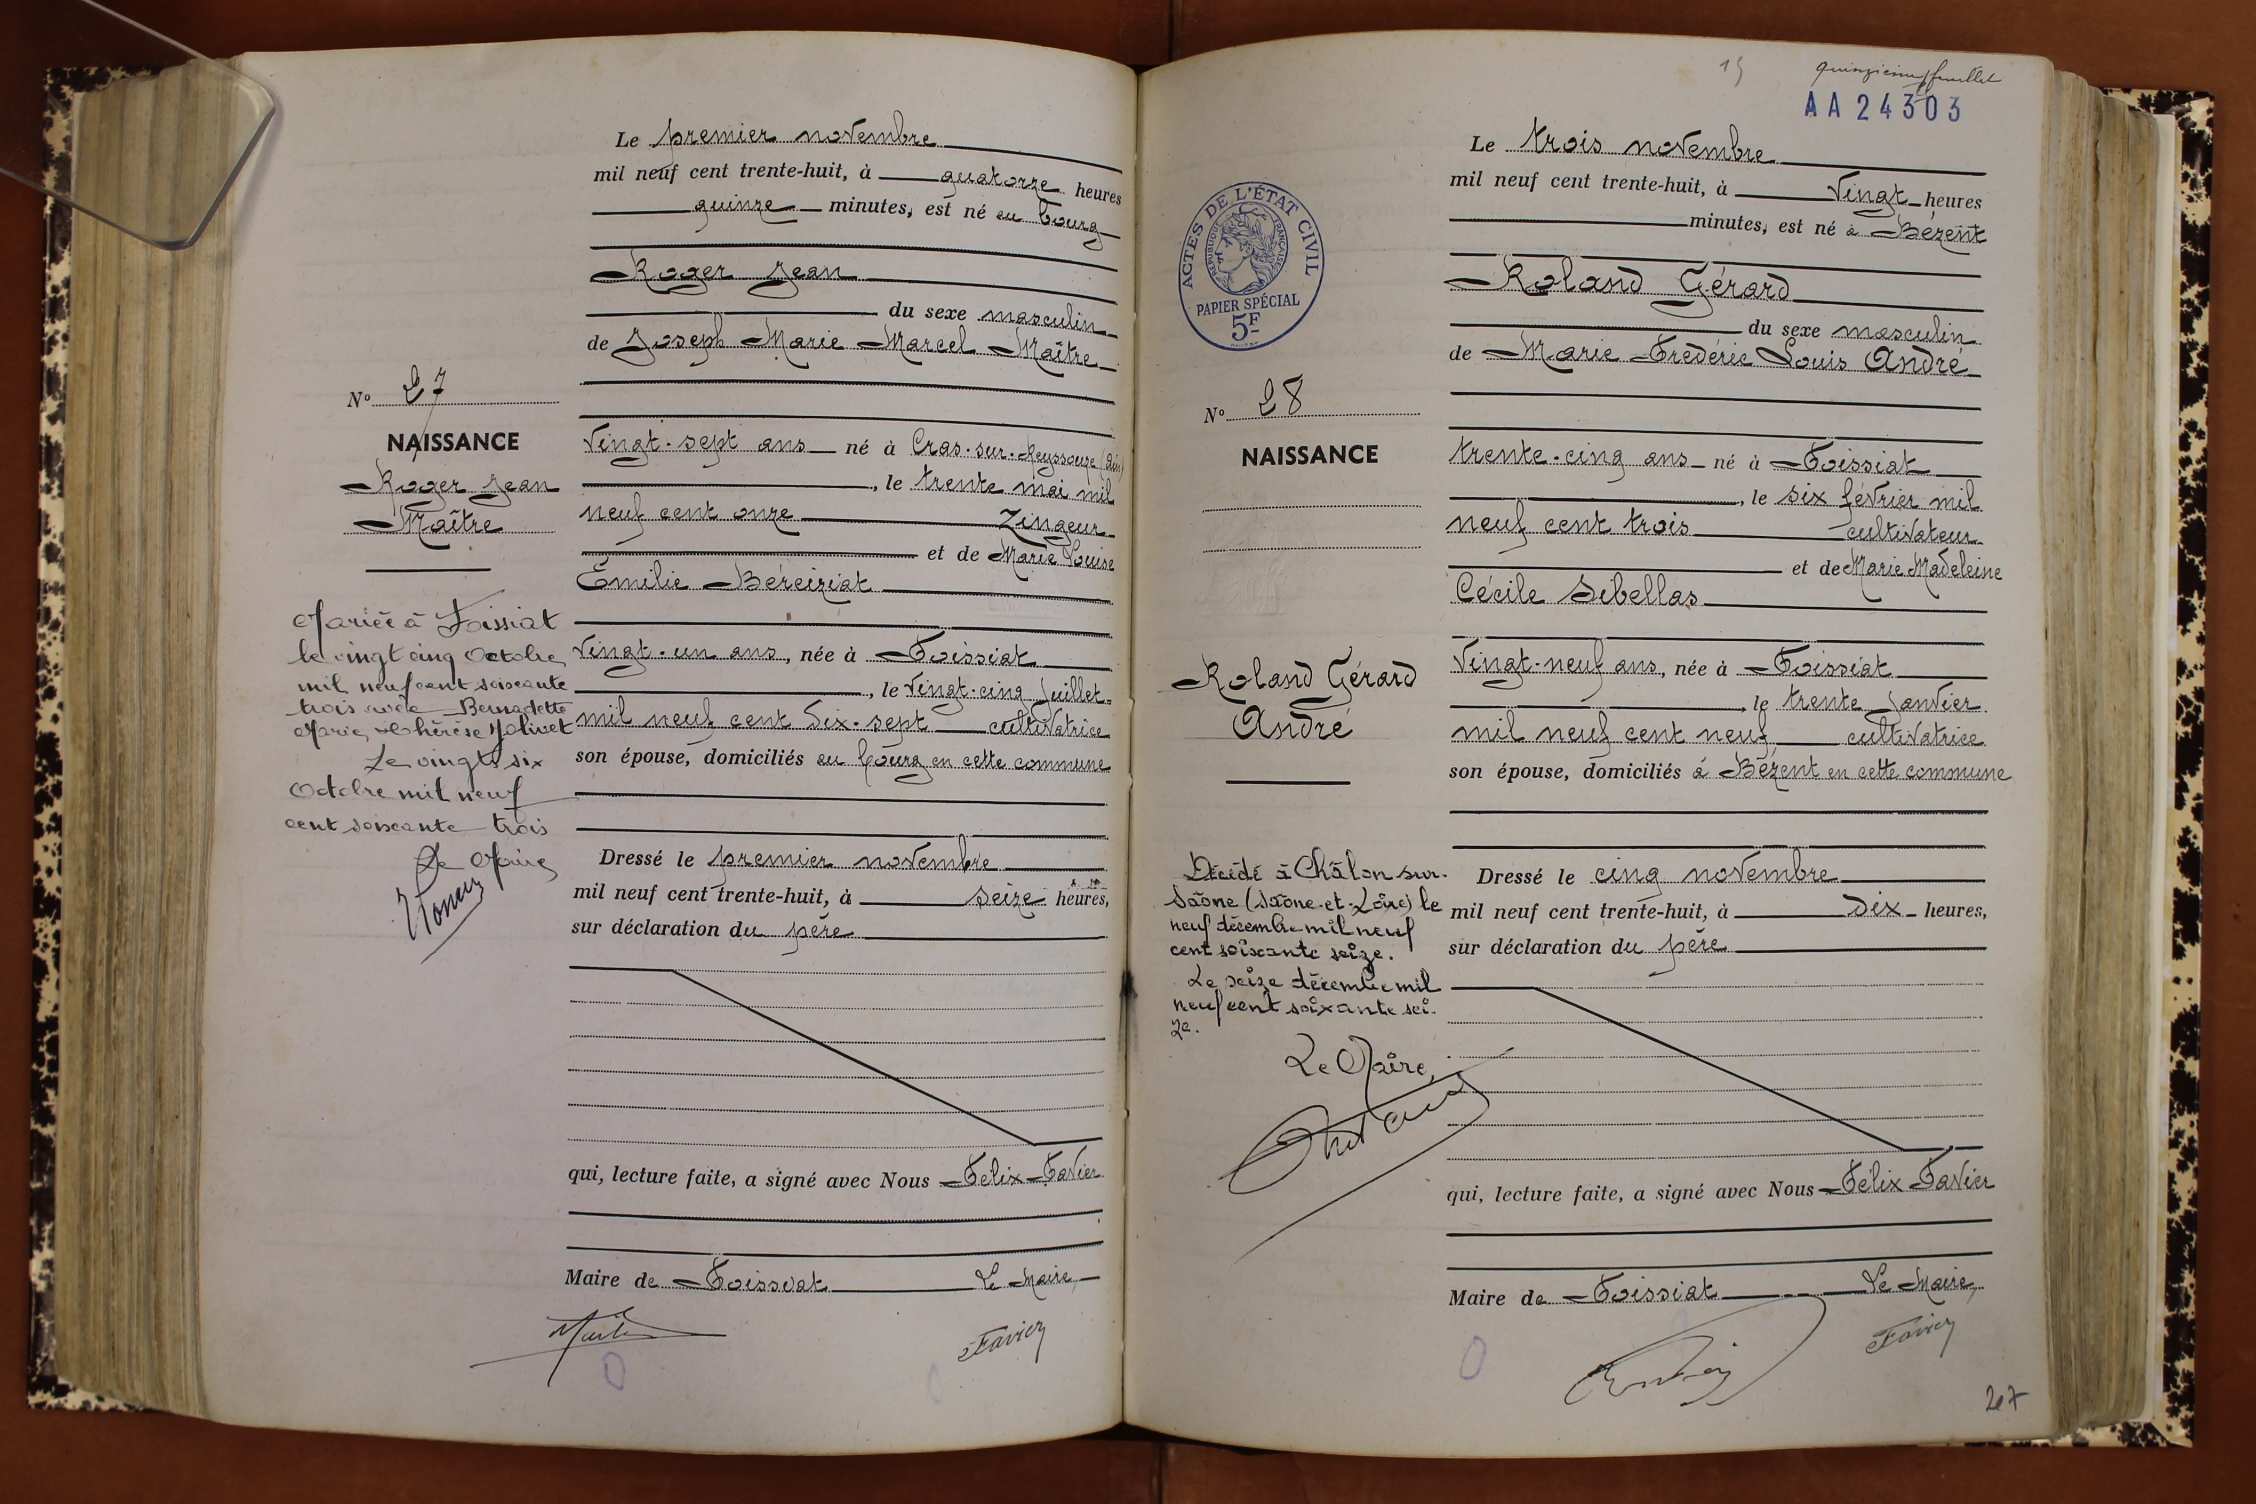 Le premier novembre
mil neuf cent trente-huit, à quatorze heures
quinze minutes, est né au bourg
Roger Jean
du sexe masculin
de Joseph Marie Marcel Maître
N° 27
NAISSANCE
Roger Jean
Maître
vingt-sept ans né à Cras-sur-Reyssouze (Ain)
, le trente mai mil
neuf cent onze zingeur
et de Marie Louise
Émilie Béreiziat
vingt-un ans, née à Foissiat
, le vingt-cinq juillet
mil neuf cent dix-sept cultivatrice
son épouse, domiciliés au bourg en cette commune
Dressé le premier novembre
mil neuf cent trente-huit, à seize heures,
sur déclaration du père
qui, lecture faite, a signé avec Nous Félix Favier
Maire de Foissiat Le Maire,
Favier
Marié à Foissiat
le vingt cinq Octobre
mil neuf cent soixante
trois avec Bernadette
Marie Thérèse Jolivet
Le vingt six
Octobre mil neuf
cent soixante trois
Le Maire
15
quinzième feuillet
AA24303
Le trois novembre
mil neuf cent trente-huit, à vingt heures
minutes, est né à Bézent
Roland Gérard
du sexe masculin
de Marie Frédéric Louis André
ACTES DE L'ÉTAT CIVIL
RÉPUBLIQUE FRANÇAISE
PAPIER SPÉCIAL
5F
N° 28
NAISSANCE
Roland Gérard
André
trente-cinq ans né à Foissiat
, le six février mil
neuf cent trois cultivateur
et de Marie Madeleine
Cécile Sibellas
vingt-neuf ans, née à Foissiat
, le trente janvier
mil neuf cent neuf cultivatrice
son épouse, domiciliés à Bézent en cette commune
Dressé le cinq novembre
mil neuf cent trente-huit, à dix heures,
sur déclaration du père
qui, lecture faite, a signé avec Nous Félix Favier
Maire de Foissiat Le Maire,
Favier
Décédé à Châlon sur-
Saône (Saône-et-Loire) le
neuf décembre mil neuf
cent soixante seize.
Le seize décembre mil
neuf cent soixante sei-
ze.
Le Maire,
207